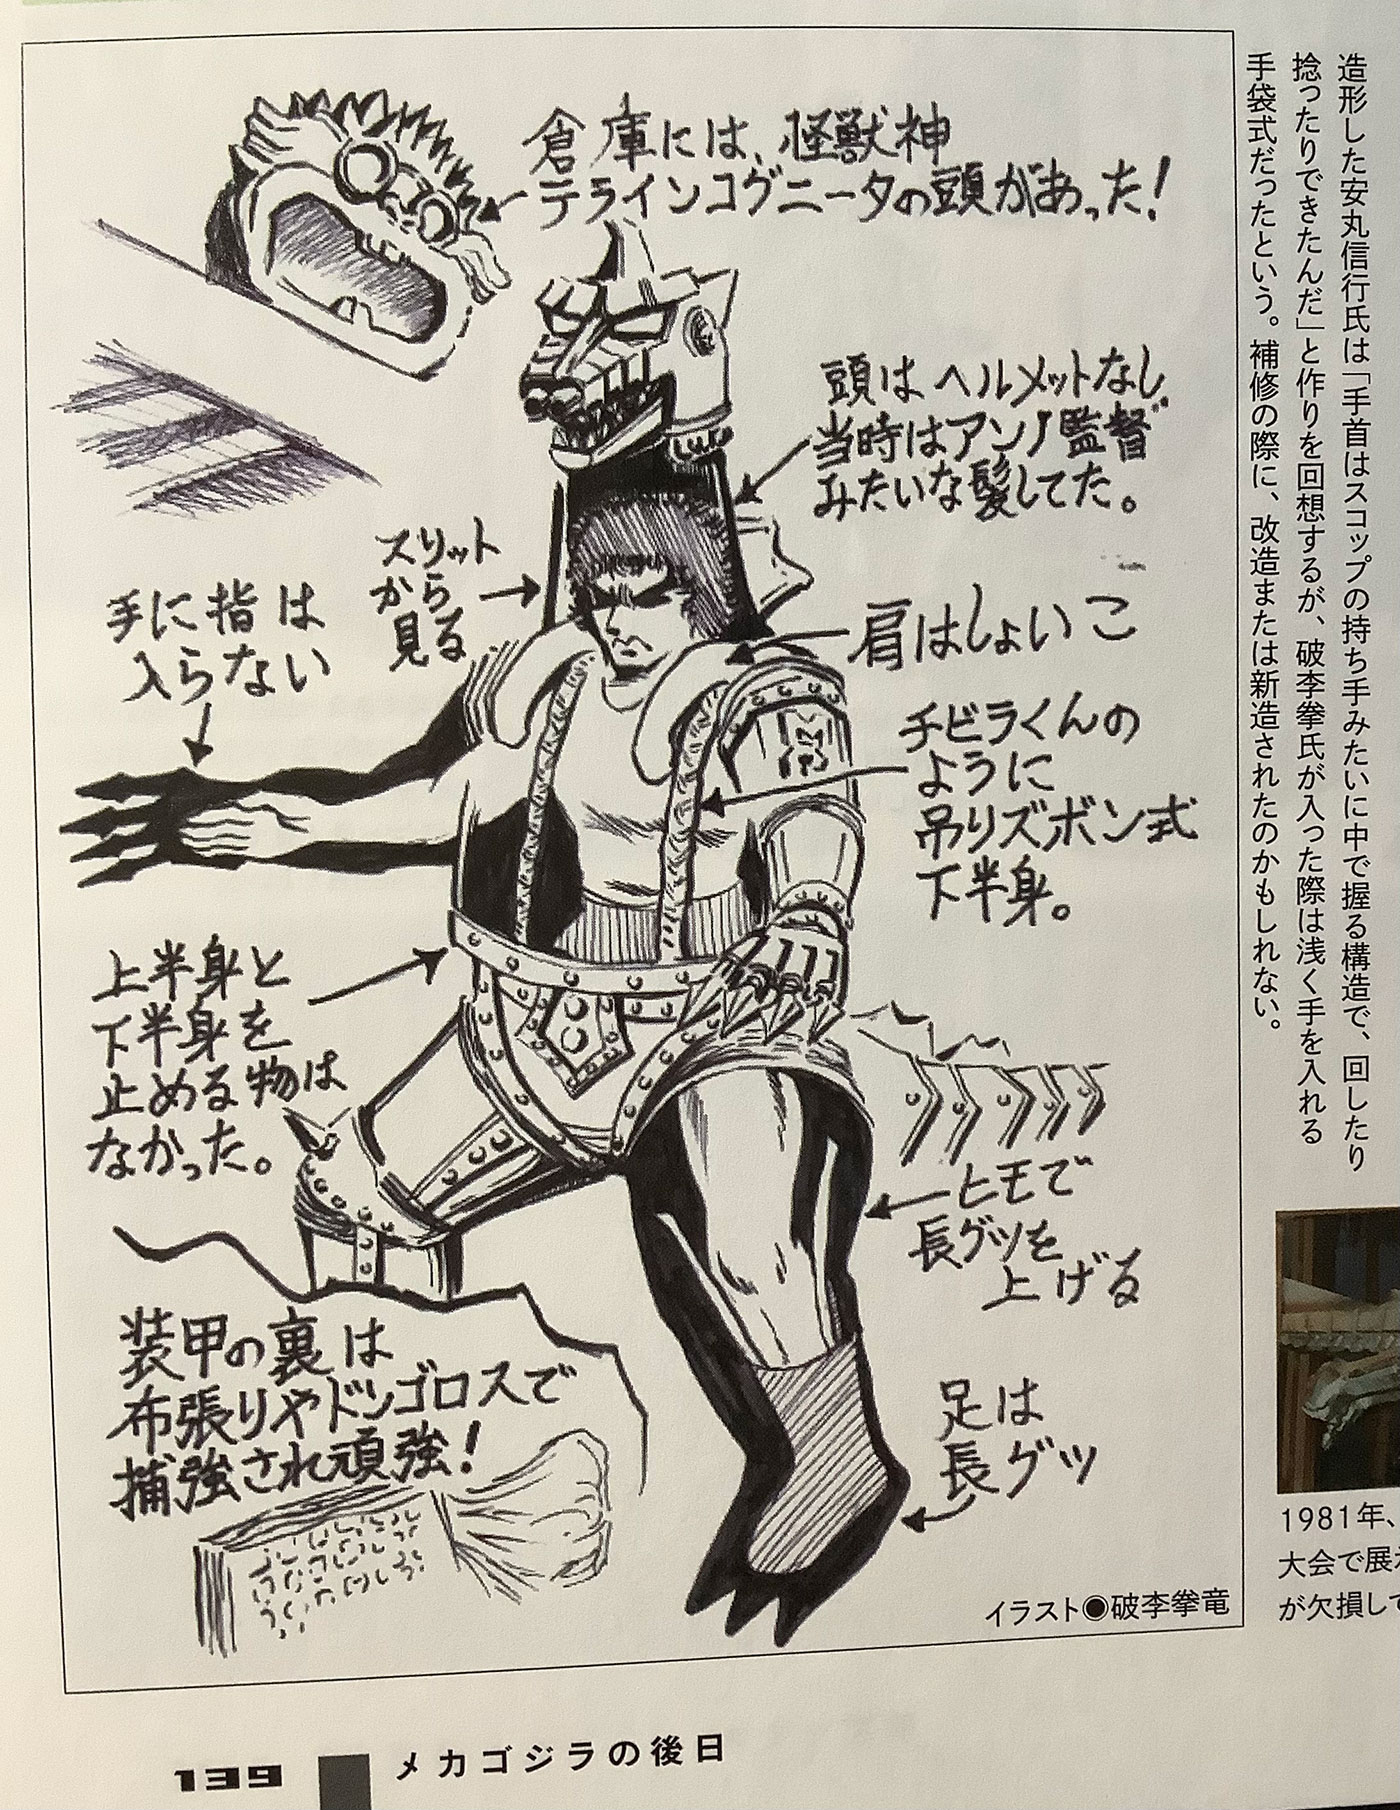 造形した安丸信行氏は「手首はスコップの持ち手みたいに中で握る構造で、回したり
捻ったりできたんだ」と作りを回想するが、破李拳氏が入った際は浅く手を入れる
手袋式だったという。補修の際に、改造または新造されたのかもしれない。
倉庫には、怪獣神
テラインコグニータの頭があった!
頭はヘルメットなし
当時はアンノ監督
みたいな髪してた。
スリット
から
見る
手に指は
入らない
肩はしょいこ
チビラくんの
ように
吊りズボン式
下半身。
上半身と
下半身を
止める物は
なかった。
ヒモで
長グツを
上げる
装甲の裏は
布張りやドンゴロスで
補強され頑強!
足は
長グツ
イラスト◉破李拳竜
1981年、
大会で展
が欠損して
139 メカゴジラの後日